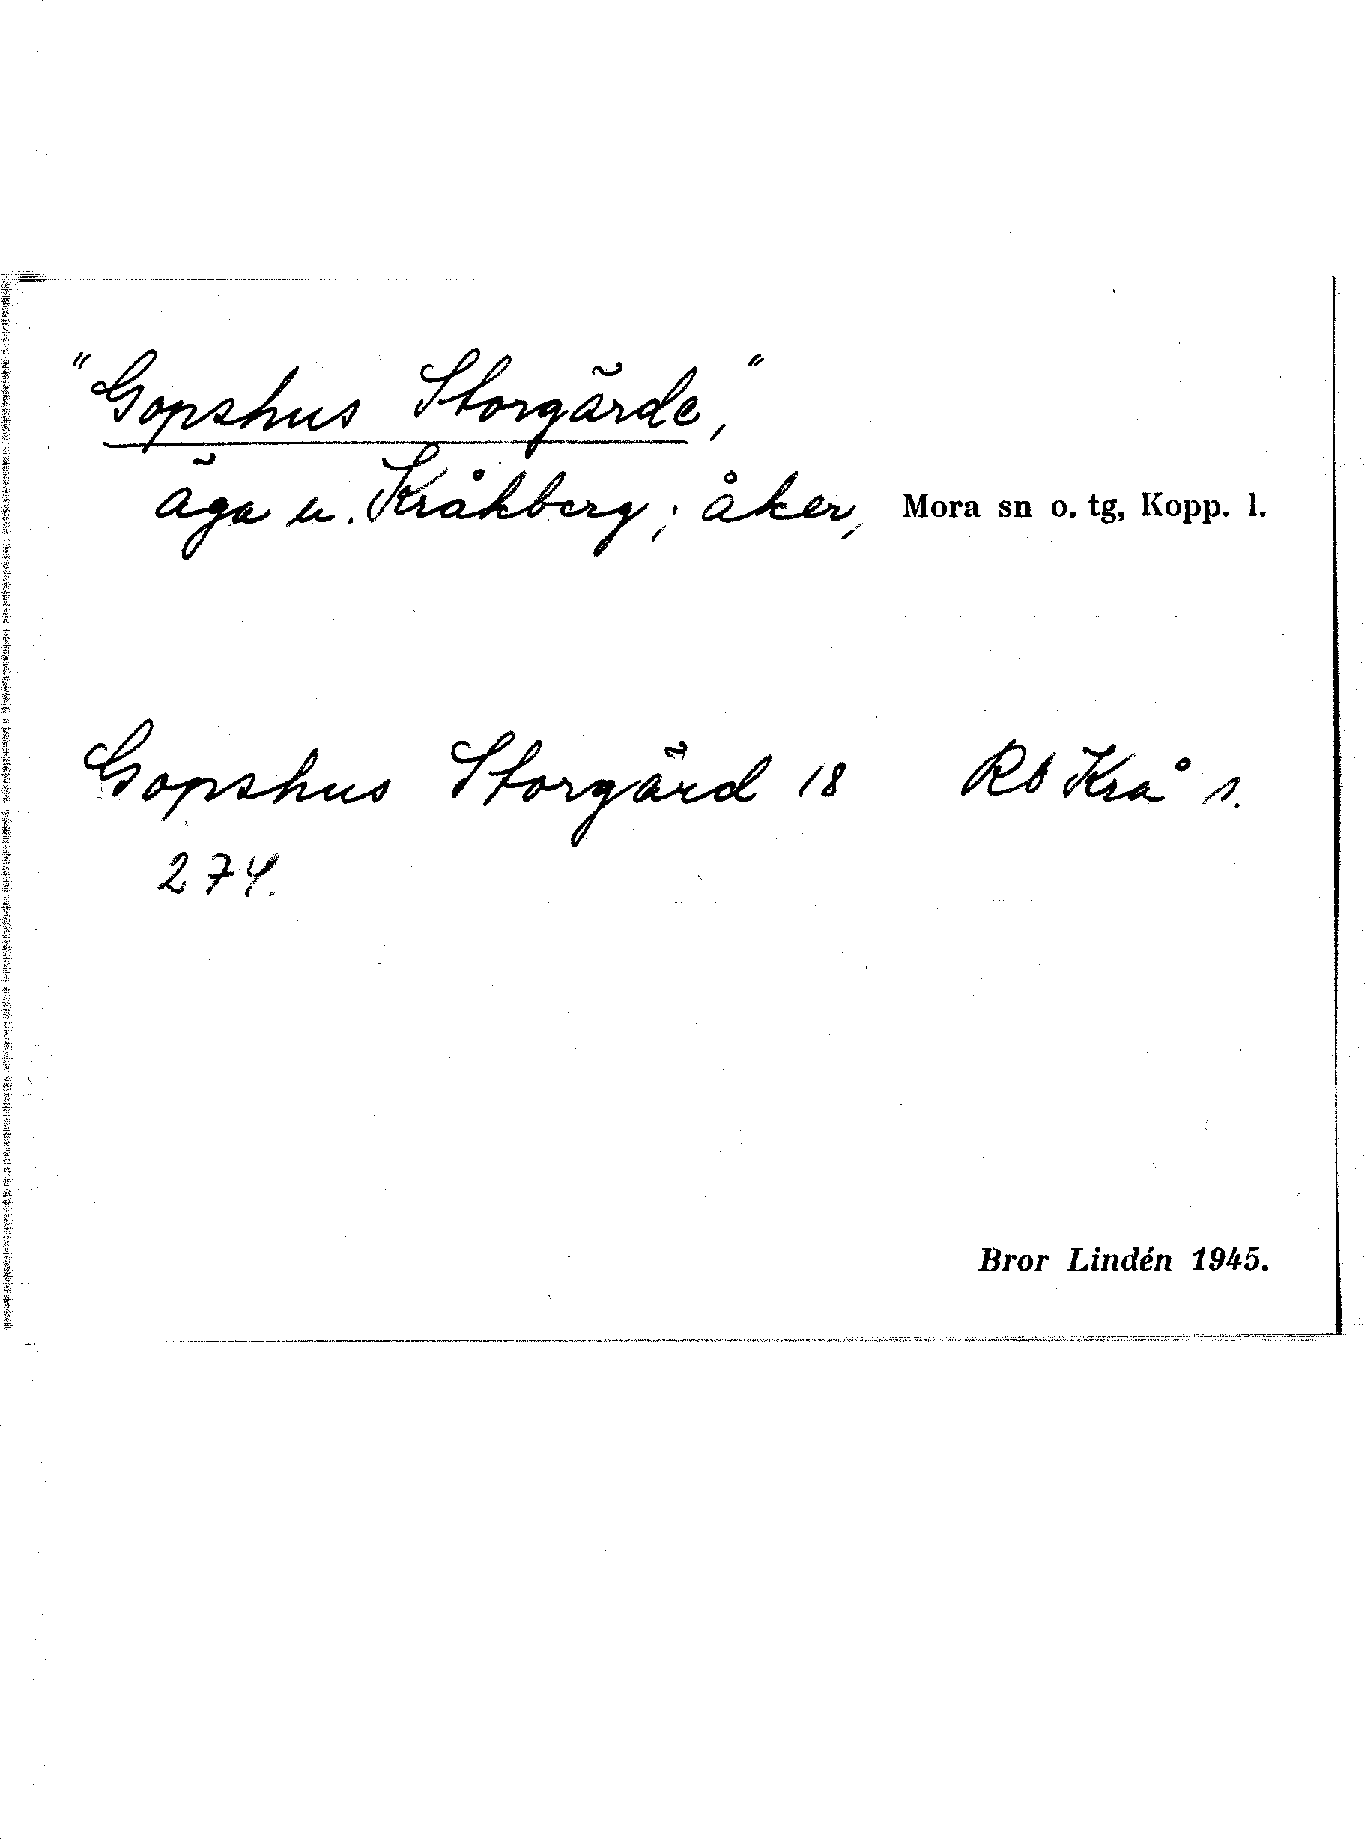 "Gopshus Storgärde,"
äga u. Kråkberg; åker, Mora sn o. tg, Kopp. l.
Gopshus Storgärd 18 Rb Krå s.
274.
Bror Lindén 1945.